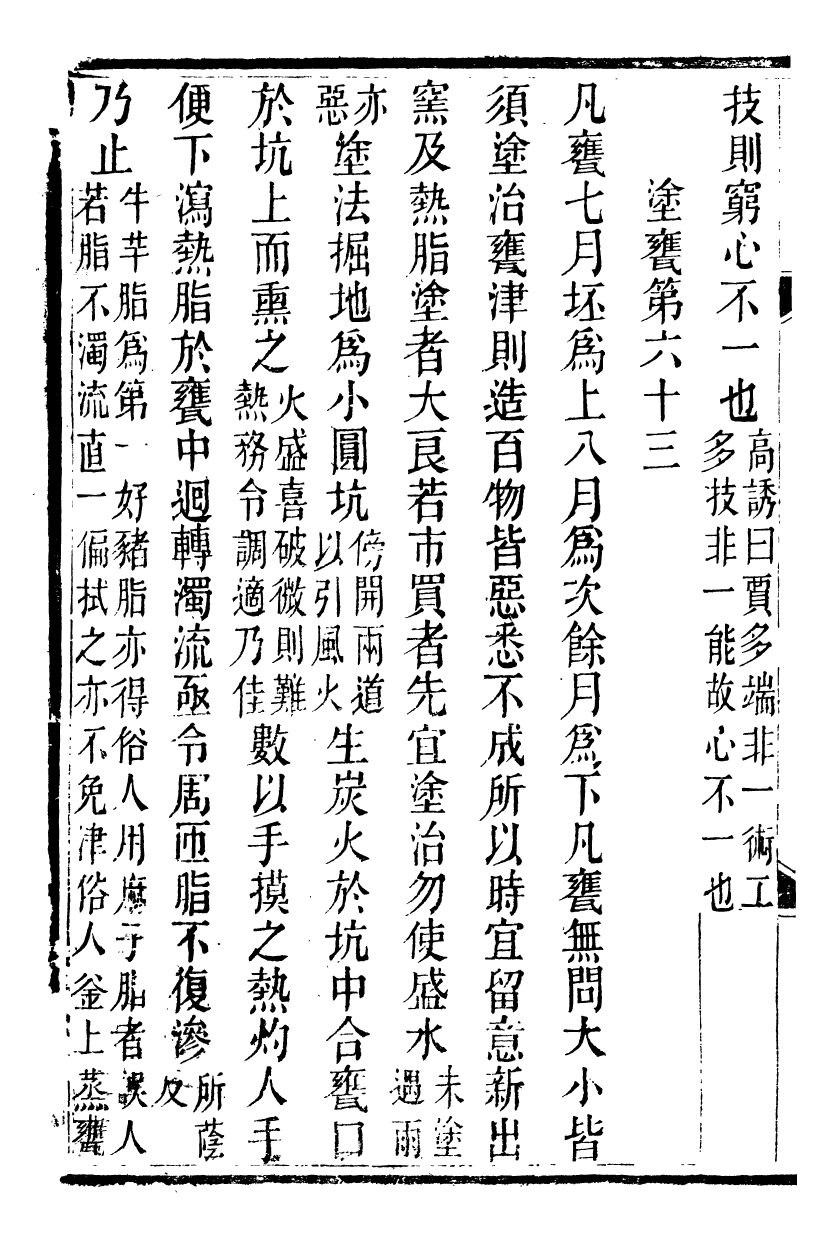 技則窮心不一也高誘曰賈多端非一術工多技非一能故心不一也
塗甕第六十三
凡甕七月坯為上八月為次餘月為下凡甕無問大小皆
須塗治甕津則造百物皆惡悉不成所以時宜留意新出
窯及熱脂塗者大良若市買者先宜塗治勿使盛水未塗遇雨
亦惡塗法掘地為小圓坑傍開兩道以引風火生炭火於坑中合甕口
於坑上而熏之火盛喜破微則難熱務令調適乃佳數以手摸之熱灼人手
便下瀉熱脂於甕中迴轉濁流亟令周匝脂不復滲所蔭
乃止牛羊脂為第一好豬脂亦得俗人用麻子脂者誤人若脂不濁流直一偏拭之亦不免津俗人釜上蒸甕